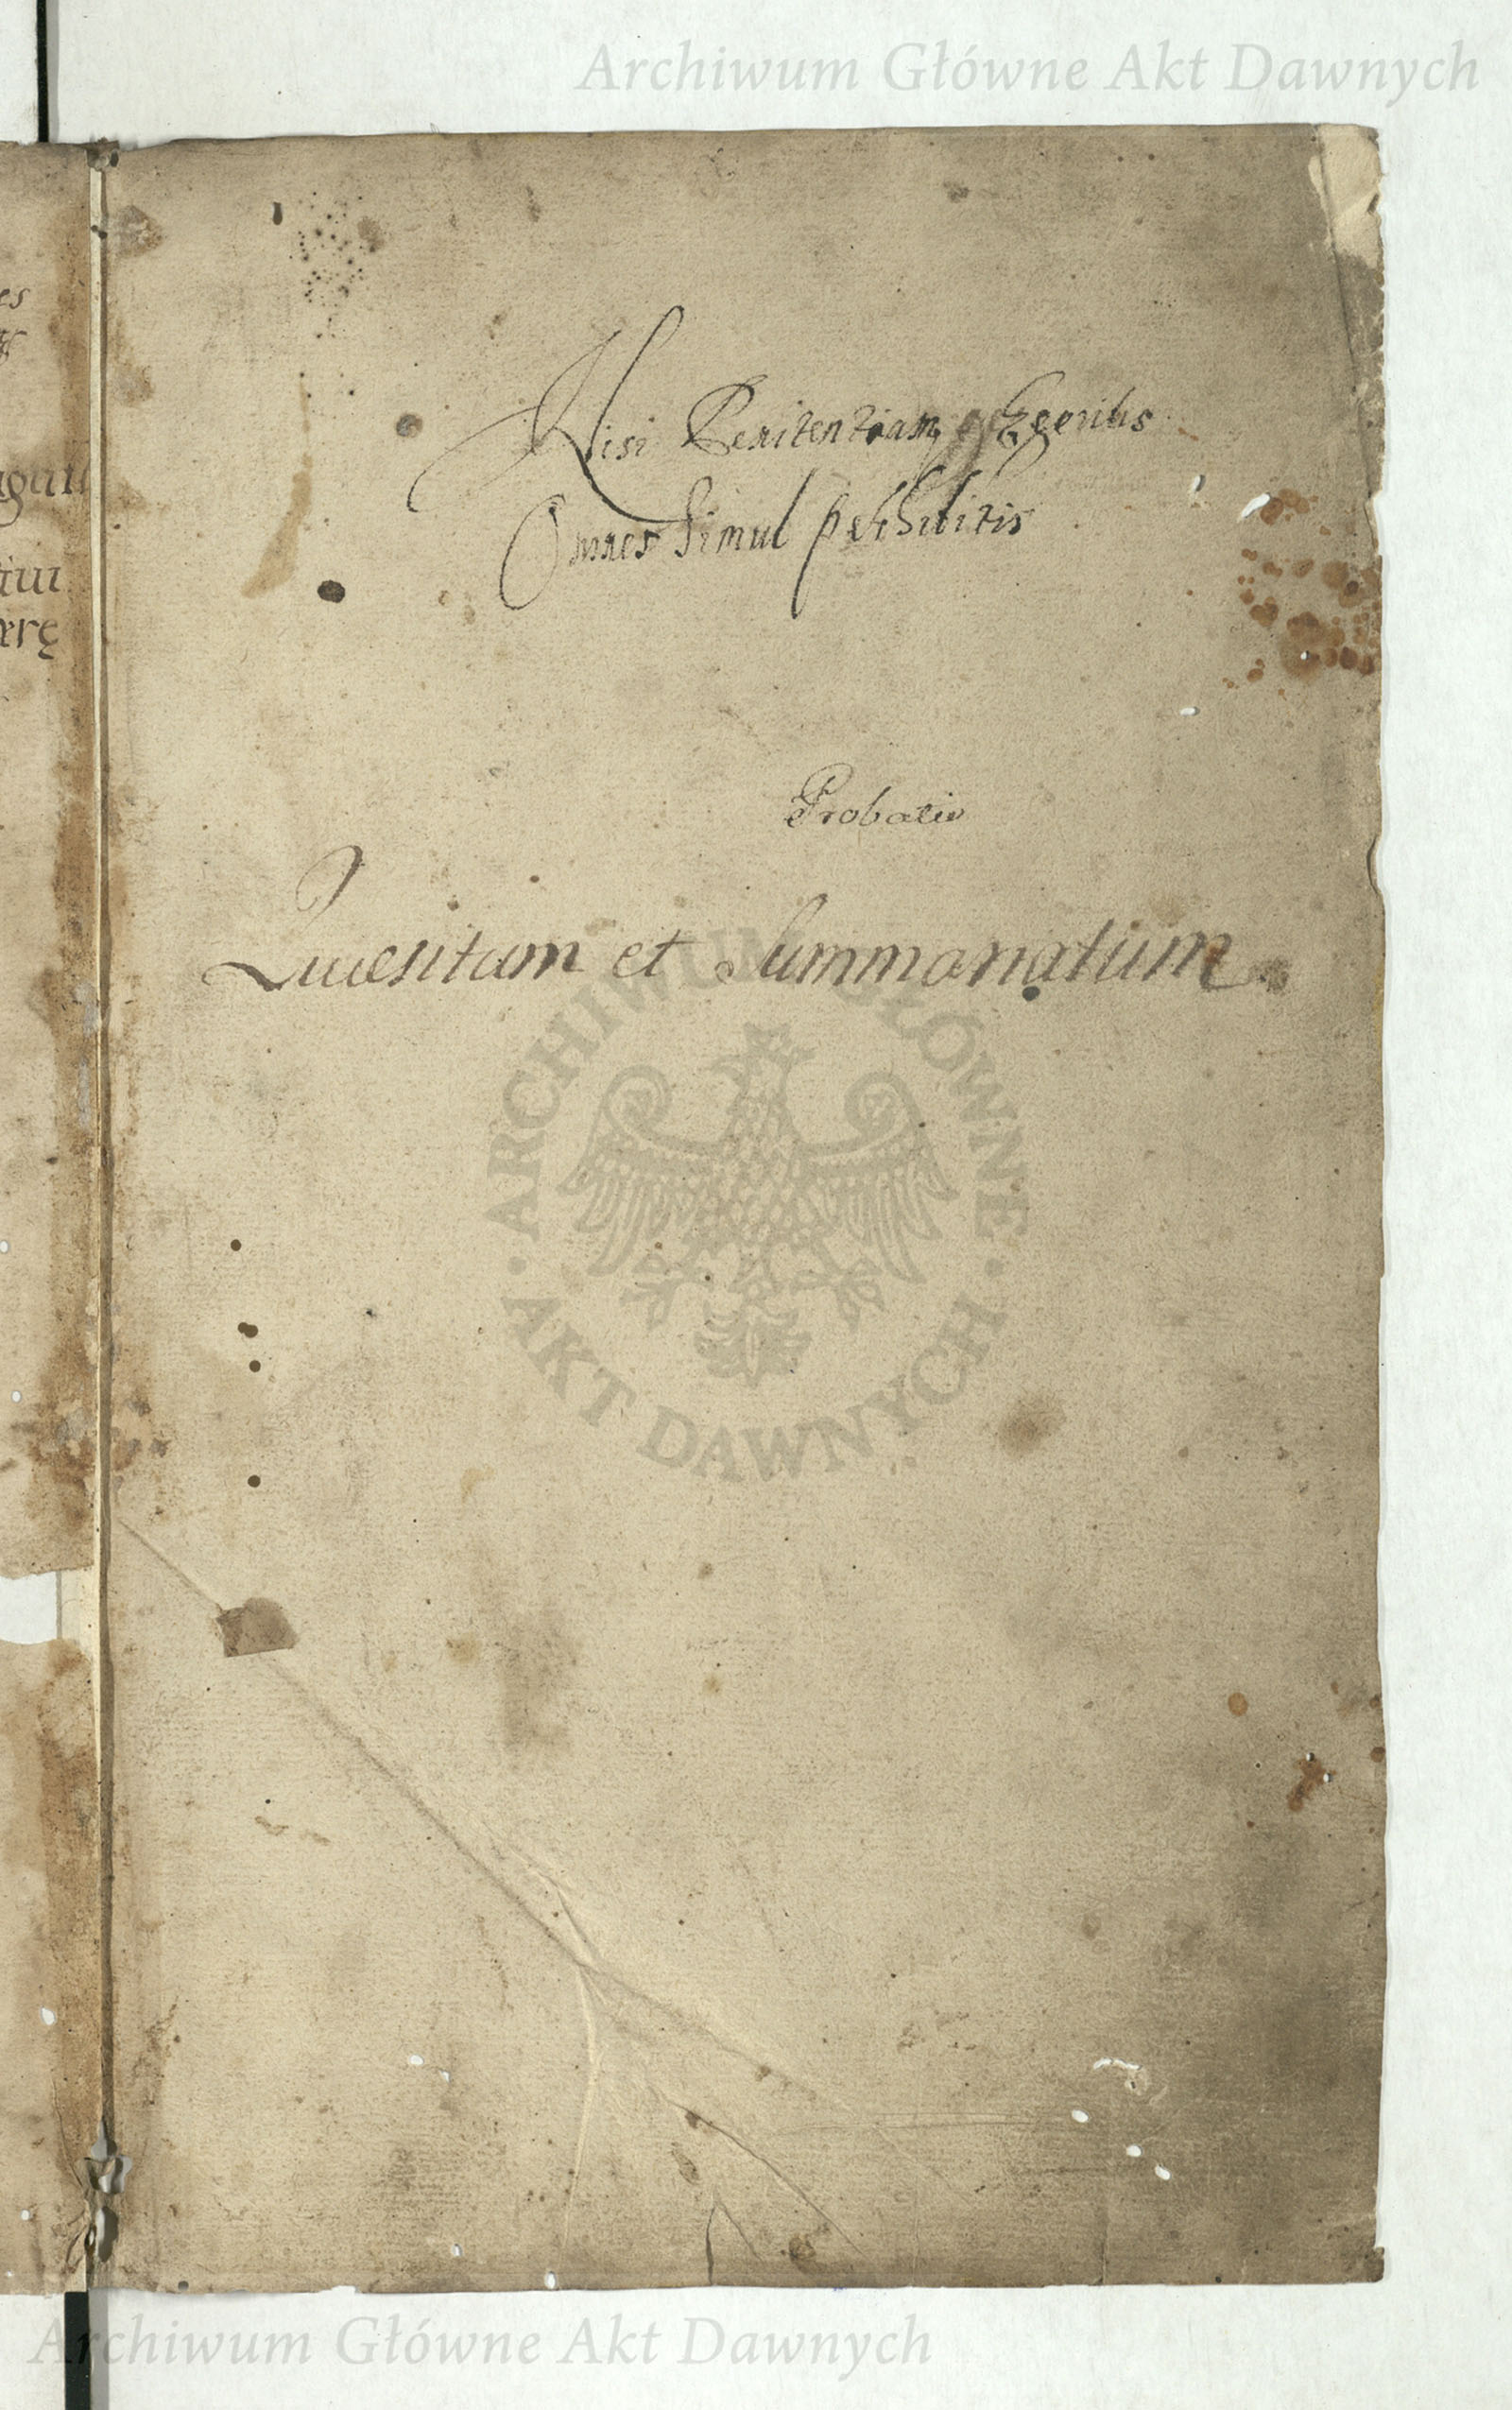 Archiwum Główne Akt Dawnych
es
Nisi Penitentiam Egeritis
Omnes Simul peribitis
Probatio
Quaesitam et Summariatum
ARCHIWUM GŁÓWNE · AKT DAWNYCH ·
Archiwum Główne Akt Dawnych